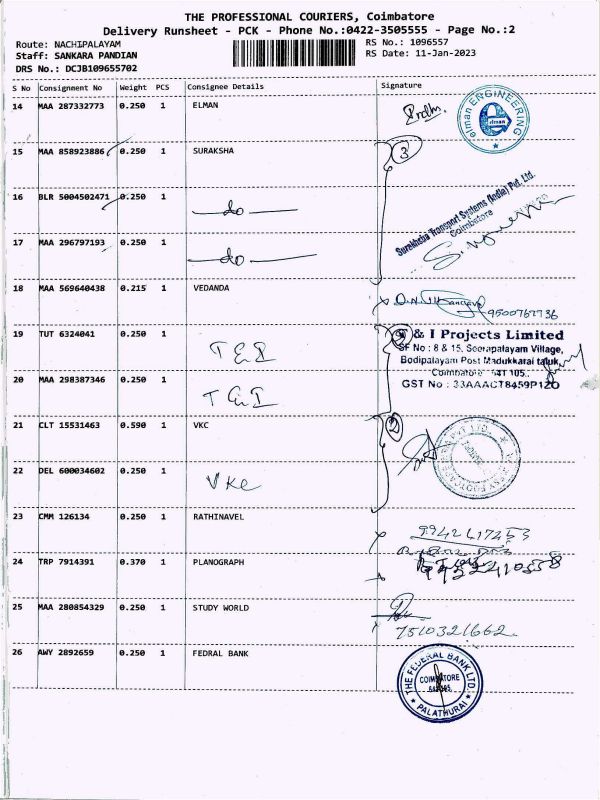 THE PROFESSIONAL COURIERS, Coimbatore
Delivery Runsheet - PCK - Phone No.:0422-3505555 - Page No.:2
Route: NACHIPALAYAM
RS No.: 1096557
Staff: SANKARA PANDIAN
RS Date: 11-Jan-2023
DRS No.: DCJB109655702
S No Consignment No Weight PCS Consignee Details Signature
14 MAA 287332773 0.250 1 ELMAN
elman ENGINEERING
elman
15 MAA 858923886 0.250 1 SURAKSHA
3
16 BLR 5004502471 0.250 1 do
Coimbatore
17 MAA 296797193 0.250 1 do
18 MAA 569640438 0.215 1 VEDANDA
19 TUT 6324041 0.250 1
& I Projects Limited
SF No : 8 & 15, Seerapalayam Village,
Bodipalayam Post Madukkarai taluk,
Coimbatore 641 105.
20 MAA 298387346 0.250 1
GST No : 33AAACT8459P1ZO
21 CLT 15531463 0.590 1 VKC
2
22 DEL 600034602 0.250 1 VKC
23 CMM 126134 0.250 1 RATHINAVEL
24 TRP 7914391 0.370 1 PLANOGRAPH
25 MAA 280854329 0.250 1 STUDY WORLD
7510321662
26 AWY 2892659 0.250 1 FEDRAL BANK
THE FEDERAL BANK LTD.
COIMBATORE
PALATHURAI